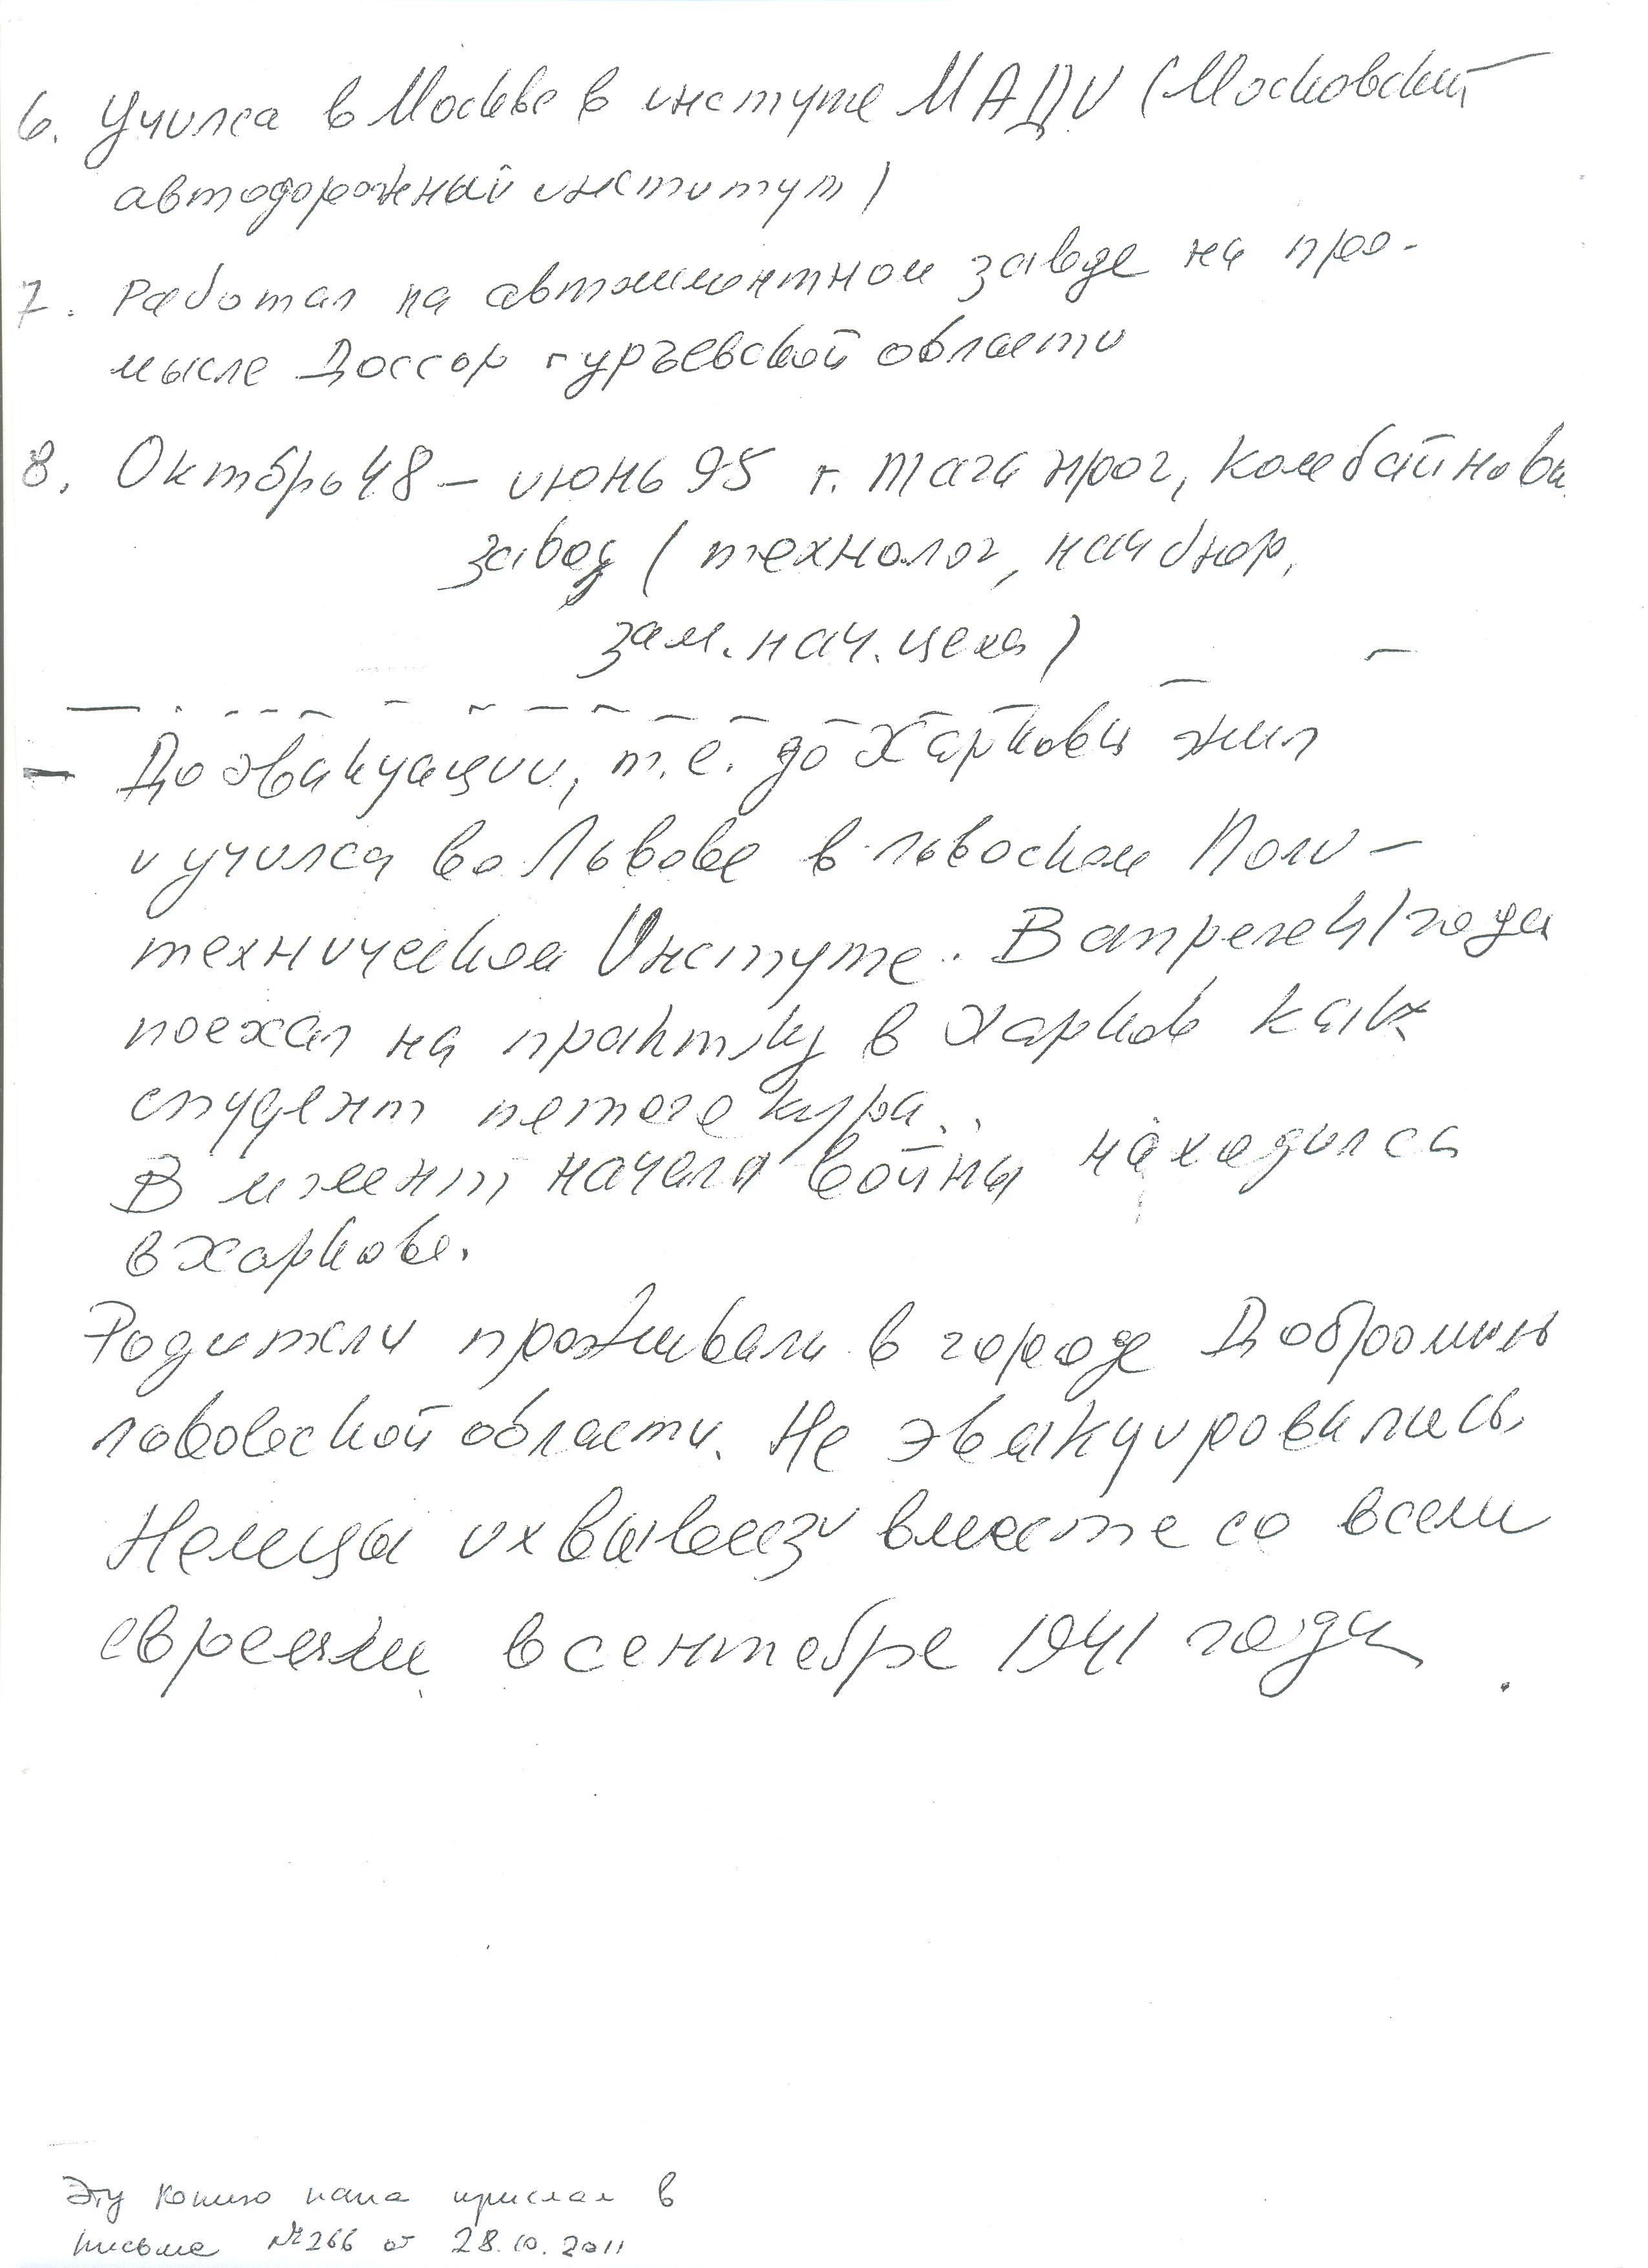 6. Учился в Москве в инстуте МАДИ (Московский
автодорожный институт)
7. Работал на автомонтном заводе на про-
мысле Доссор гурьевской области
8. Октябрь 48 – июнь 95 г. Таганрог, комбайновы
завод (технолог, нач бюр,
зам. нач. цеха)
– До эвакуации, т.е. до Харькова жил
и учился во Львове в львоском Поли-
техническом Инстуте. В апреле 41 года
поехал на практику в Харков как
студент петого курса.
В момент начала войны находился
в Харкове.
Родители проживали в городе Добромиль
львовской области. Не эвакуировались
Немцы их вывезли вместе со всеми
евреями в сентебре 1941 года.
Эту копию папа прислал в
письме № 266 от 28.10.2011